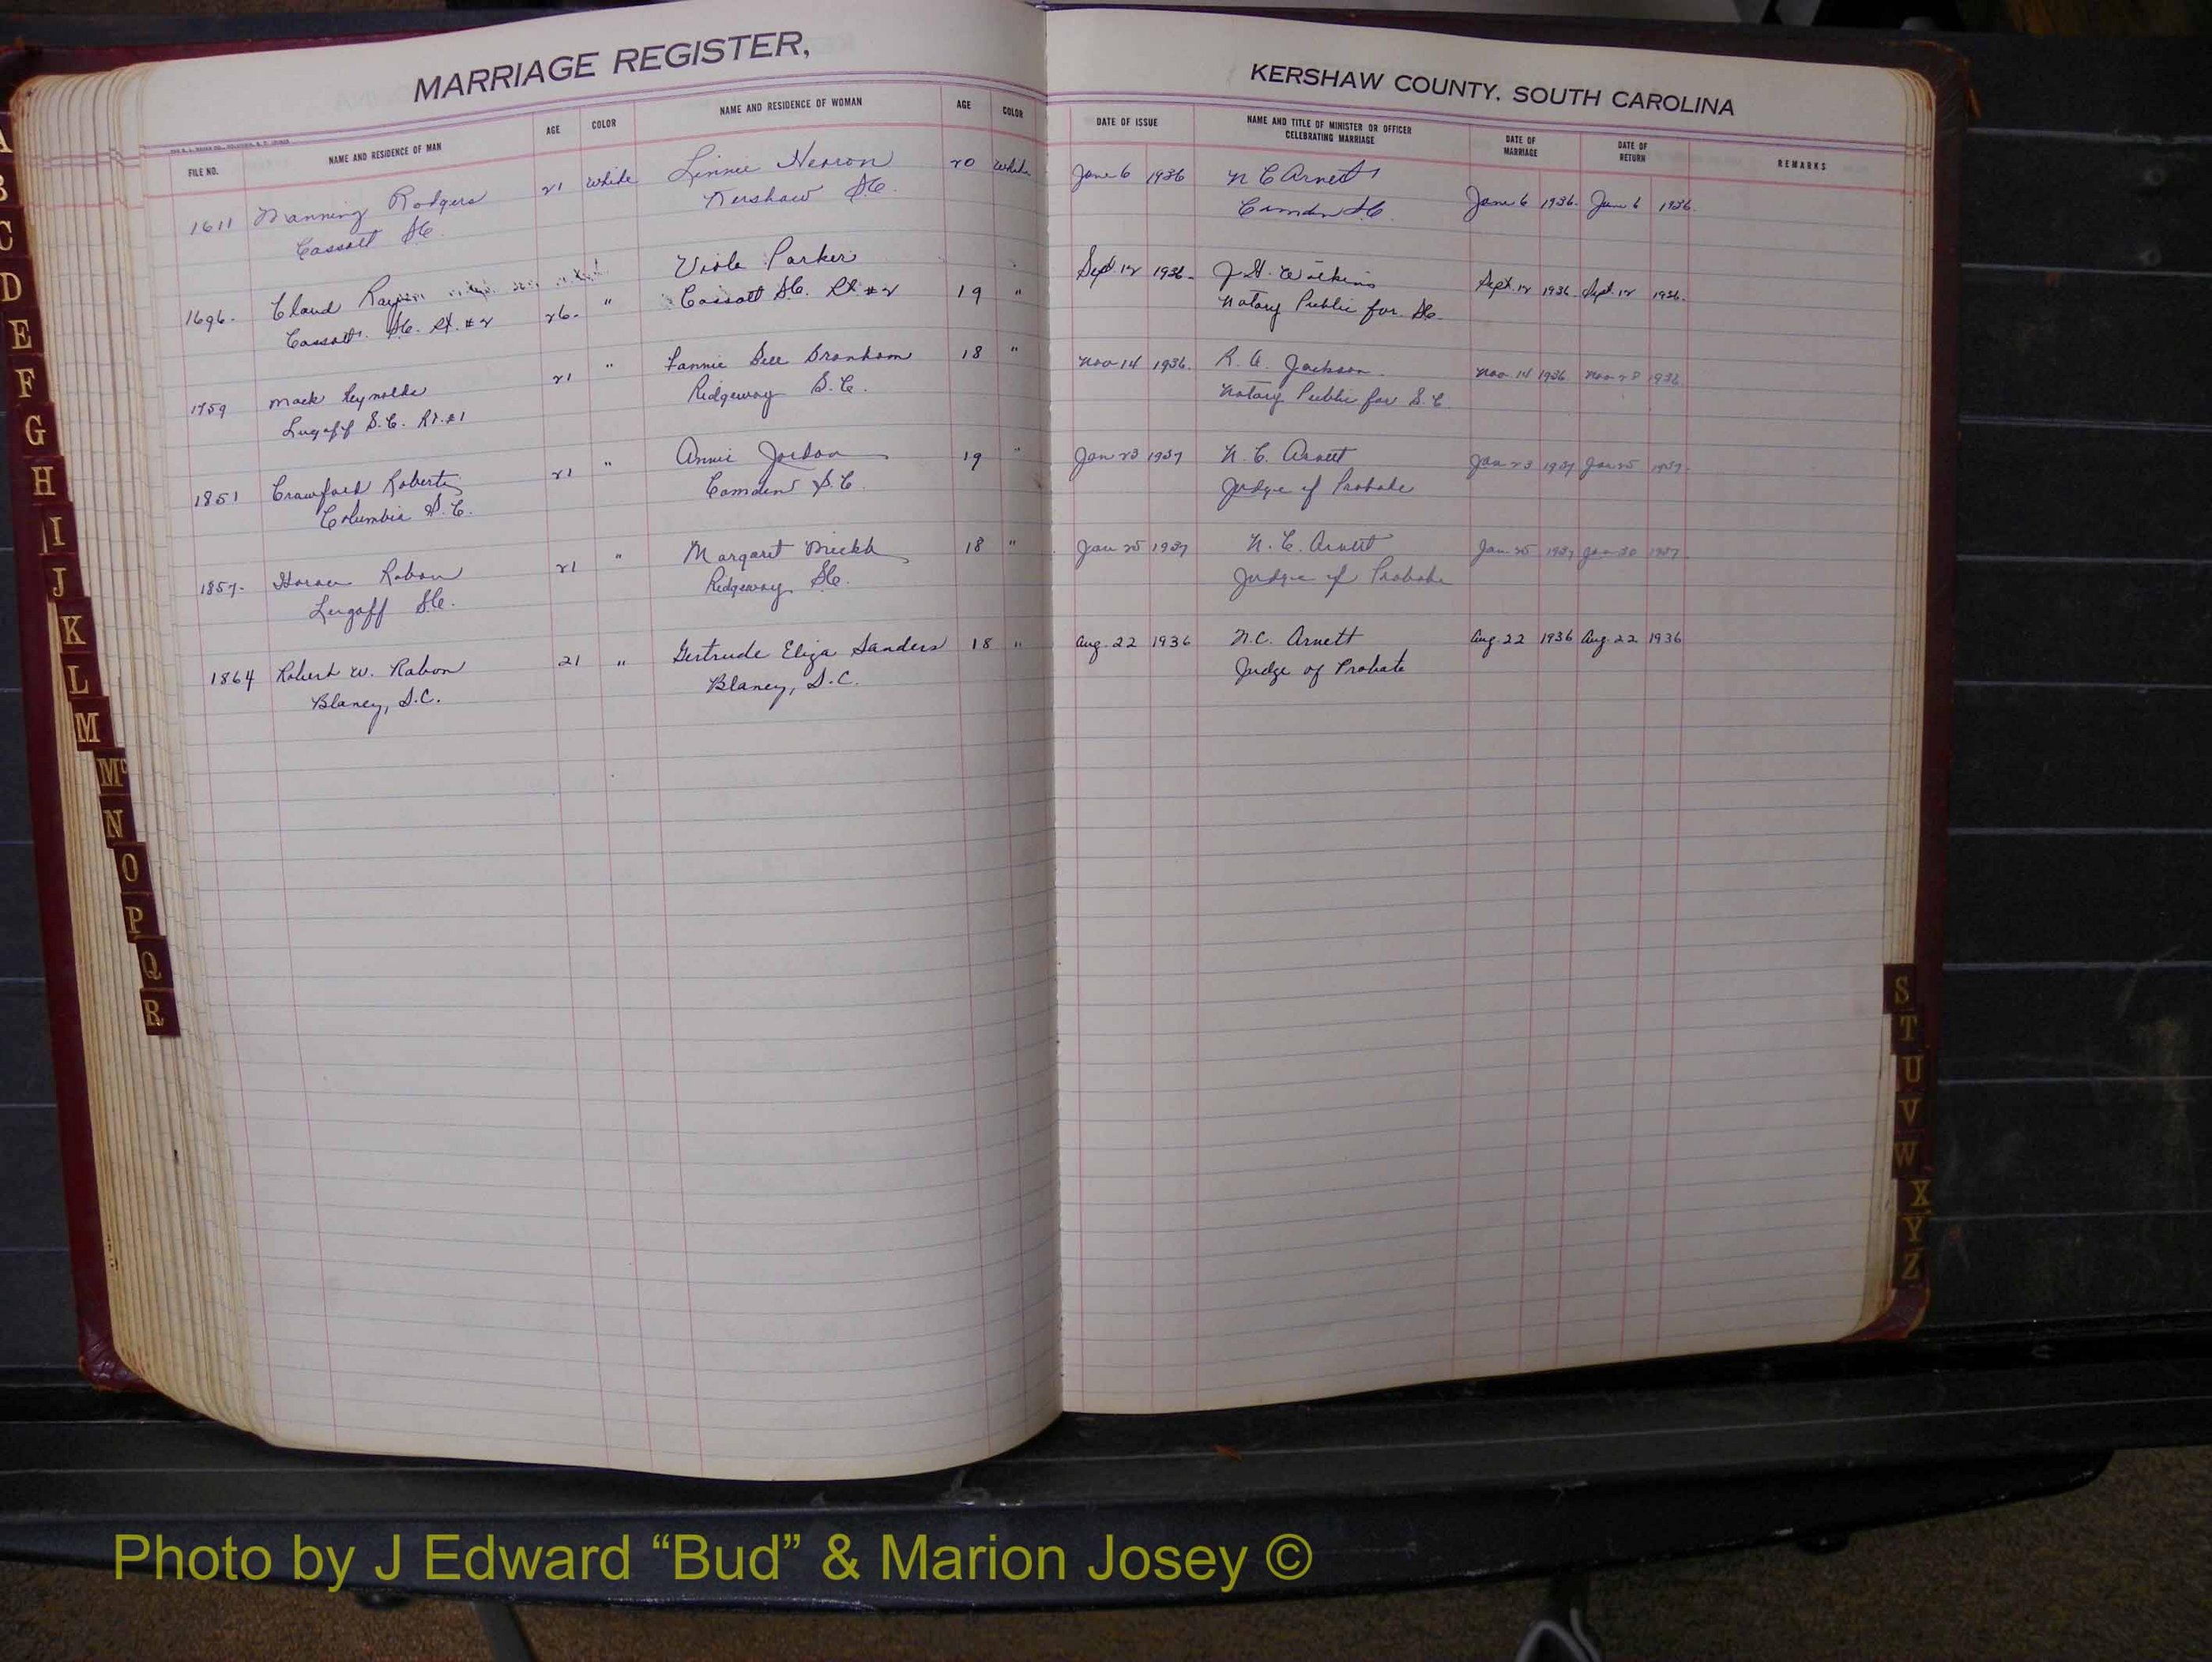 MARRIAGE REGISTER,
FILE NO. NAME AND RESIDENCE OF MAN AGE COLOR NAME AND RESIDENCE OF WOMAN AGE COLOR
1611 Manning Rodgers 21 White Linnie Herron 20 White
Cassatt SC. Kershaw SC.
1696. Claud 26. " Viola Parker 19 "
Cassatt. SC. Rt. #2 Cassatt SC. Rt #2
1759 Mack Reynolds 21 " Fannie Bell Branham 18 "
Lugoff S.C. Rt. #1 Ridgeway S.C.
1851 Crawford Roberts 21 " Annie Jordan 19 "
Columbia S.C. Camden S.C.
1857. Horace Rabon 21 " Margaret 18 "
Lugoff SC. Ridgeway SC.
1864 Robert W. Rabon 21 " Gertrude Eliza Sanders 18 "
Blaney, S.C. Blaney, S.C.
KERSHAW COUNTY, SOUTH CAROLINA
DATE OF ISSUE NAME AND TITLE OF MINISTER OR OFFICER CELEBRATING MARRIAGE DATE OF MARRIAGE DATE OF RETURN REMARKS
June 6 1936 N C Arnett
Camden SC. June 6 1936. June 6 1936.
Sept. 12 1936. J. H. Watkins Sept. 12 1936. Sept. 12 1936.
Notary Public for SC.
Nov 14 1936. Jackson. Nov. 14 1936 Nov 28 1936
Notary Public for S.C.
Jan 23 1937 N. C. Arnett Jan 23 1937 Jan 25 1937.
Judge of Probate
Jan 25 1937 N. C. Arnett Jan. 25 1937 Jan 30 1937.
Judge of Probate
Aug. 22 1936 N.C. Arnett Aug 22 1936 Aug. 22 1936
Judge of Probate
A
B
C
D
E
F
G
H
I
J
K
L
M
Mc
N
O
P
Q
R
S
T
U
V
W
X
Y
Z
Photo by J Edward “Bud” & Marion Josey ©